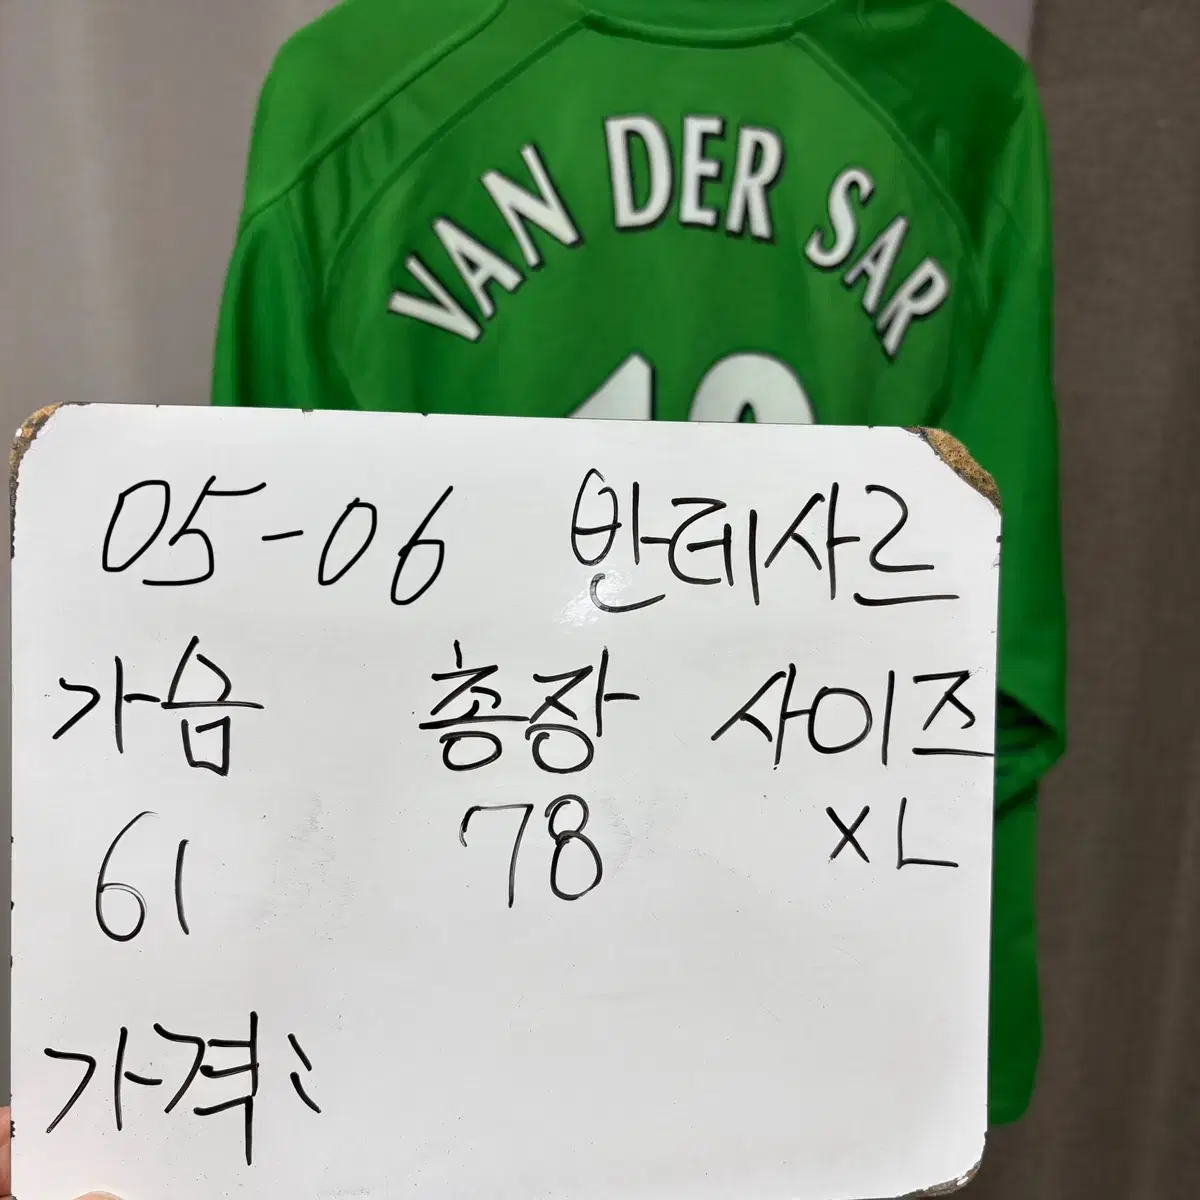 VAN DER SAR
05-06 반데사르
가슴 총장 사이즈
61 78 XL
가격: